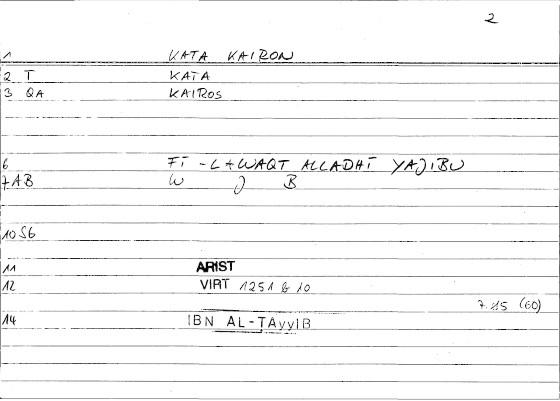 2
1 KATA KAIRON
2 T KATA
3 QA KAIROS
6 FI -L+WAQT ALLADHI YAJIBU
7 AB W J B
10 S6
11 ARIST
12 VIRT 1251 b 10
7.15 (60)
14 IBN AL-TAyyIB